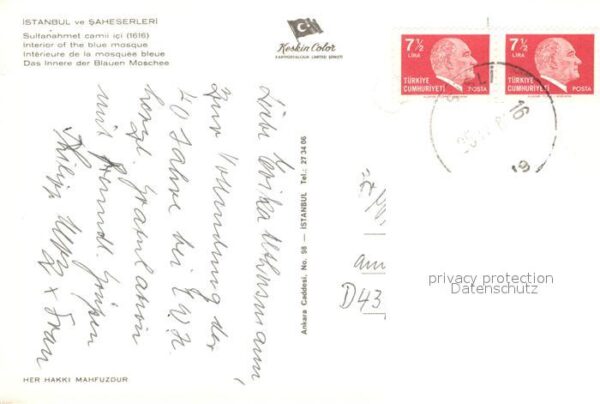 İSTANBUL ve ŞAHESERLERİ
Sultanahmet camii içi (1616)
Interior of the blue mosque
Intérieure de la mosquée bleue
Das Innere der Blauen Moschee
Keskin Color
KARTPOSTALCILIK LIMITED ŞİRKETİ
7½
LİRA
TÜRKİYE
CUMHURİYETİ
POSTA
7½
LİRA
TÜRKİYE
CUMHURİYETİ
POSTA
16
Liebe Erika
zur Vollendung der
40 Jahre bei EWK
herzl. Gratulation
mit freundl. Grüßen
Philipp & Frau
Ankara Caddesi, No. 98 — İSTANBUL Tel.: 27 34 06
am
D43
privacy protection
Datenschutz
HER HAKKI MAHFUZDUR